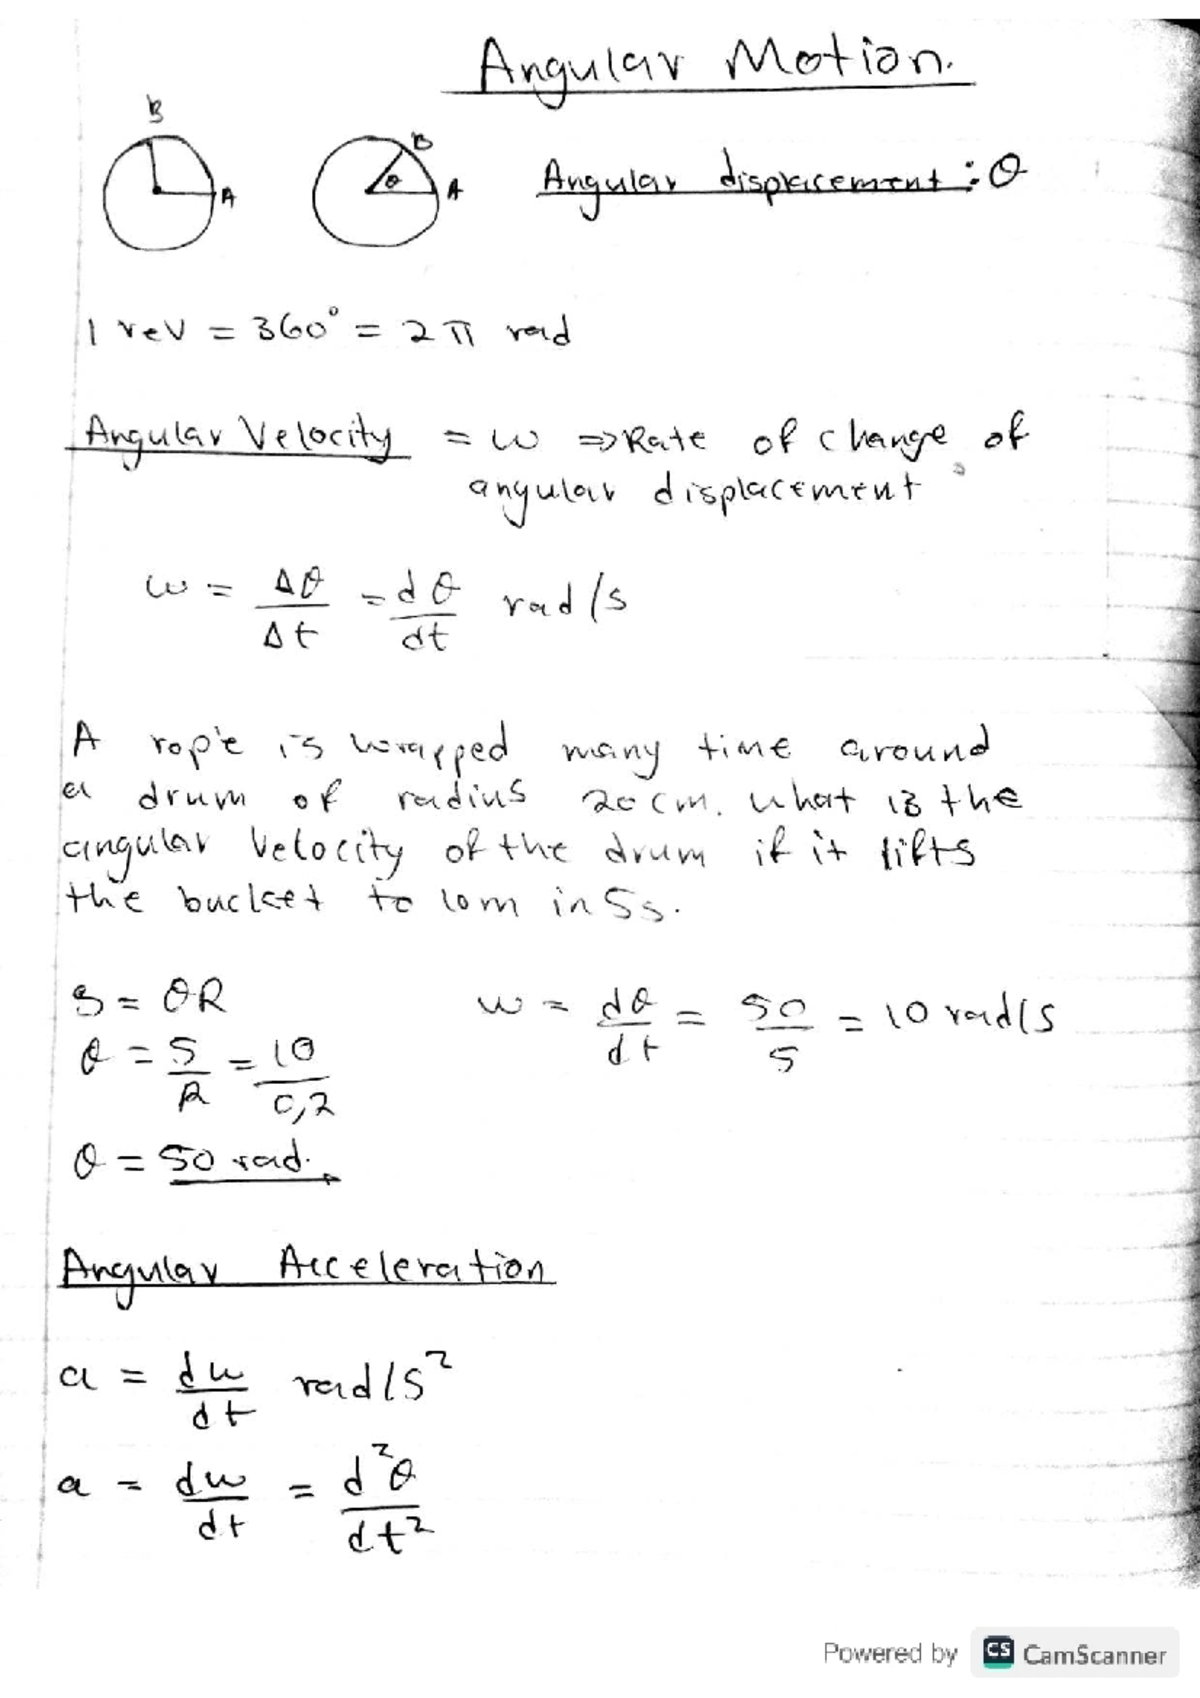 Angular Motion.
B
A
B
θ
A
Angular displacement : θ
1 rev = 360° = 2π rad
Angular Velocity = ω ⇒ Rate of change of
angular displacement
ω = Δθ/Δt = dθ/dt rad/s
A rope is wrapped many time around
a drum of radius 20cm. What is the
angular velocity of the drum if it lifts
the bucket to 10m in 5s.
S = θR
θ = S/R = 10/0,2
θ = 50 rad.
ω = dθ/dt = 50/5 = 10 rad/s
Angular Acceleration
a = dω/dt rad/s²
a = dω/dt = d²θ/dt²
Powered by CS CamScanner